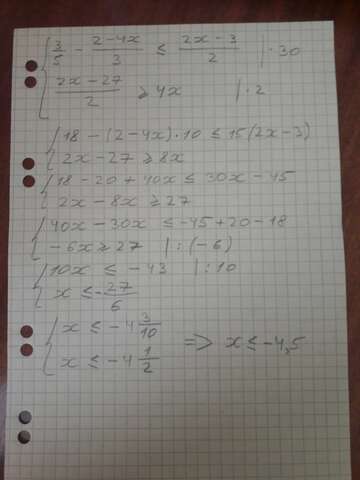 3/5 - (2-4x)/3 ≤ (2x-3)/2 | ·30
(2x-27)/2 ≥ 4x | ·2
18 - (2-4x)·10 ≤ 15(2x-3)
2x-27 ≥ 8x
18-20+40x ≤ 30x-45
2x-8x ≥ 27
40x-30x ≤ -45+20-18
-6x ≥ 27 | :(-6)
10x ≤ -43 | :10
x ≤ -27/6
x ≤ -4 3/10
x ≤ -4 1/2 => x ≤ -4,5